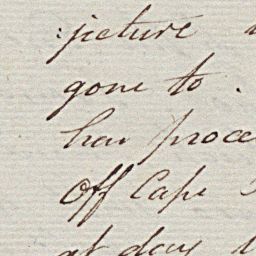 :picture
gone to
has proce
off Cape
at day